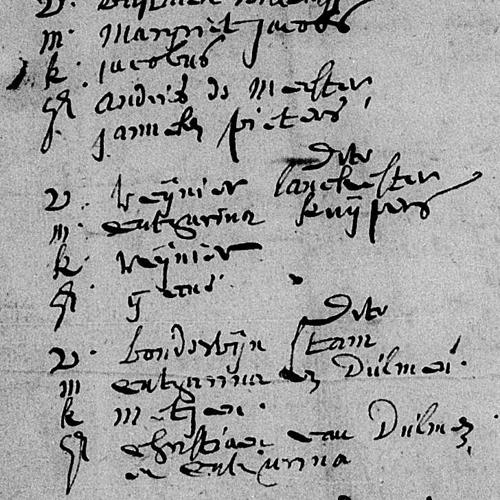 m. Margriet Jacobs
k. Jacobus
gt. Andries de Meester,
Janneken Pieters,
Dito
v. Reijnier Lanckester
m. Catharina Kuijpers
k. Reijnier
gt.
Dito
v. Boudewijn Stam
m Catharina Dulmen.
k Matijs.
gt Christiaen van Dulmen,
en Catharina